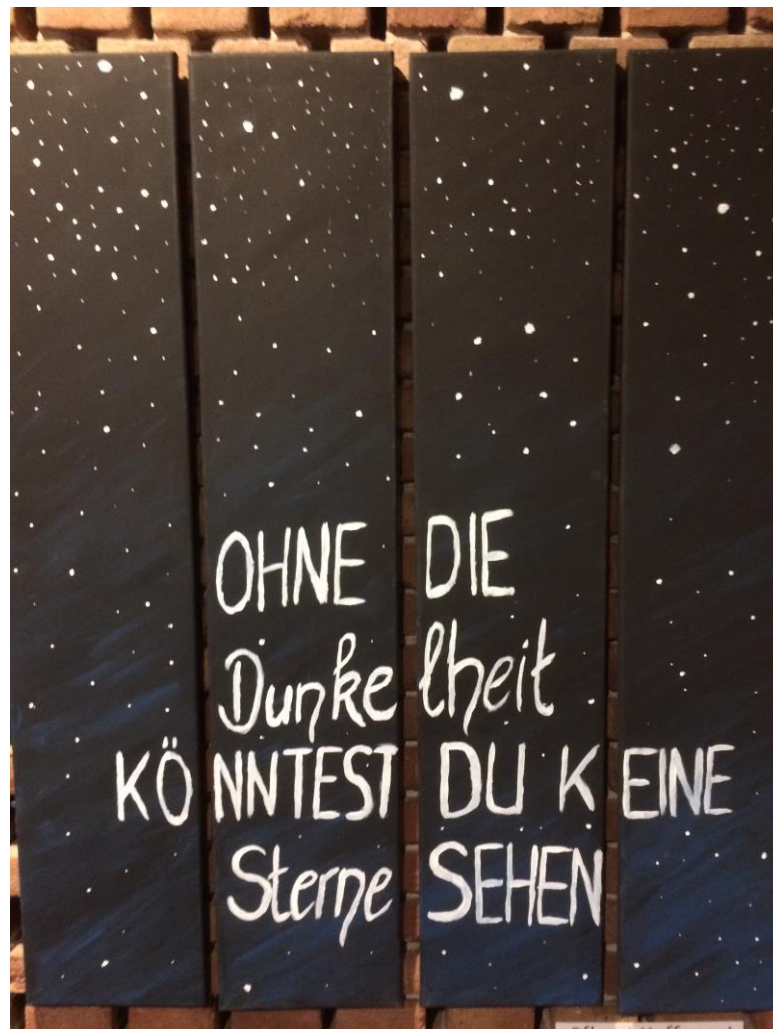 OHNE DIE
Dunkelheit
KÖNNTEST DU KEINE
Sterne SEHEN